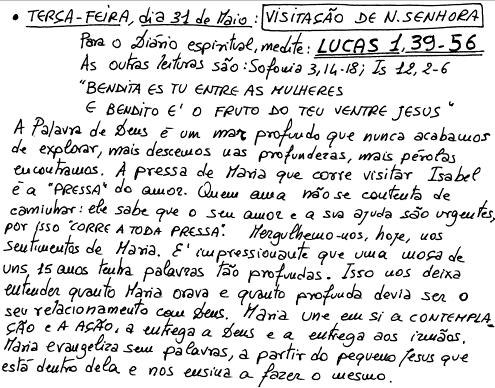 • TERÇA-FEIRA, dia 31 de Maio: VISITAÇÃO DE N. SENHORA
Para o Diário espiritual, medite: LUCAS 1,39-56
As outras leituras são: Sofonia 3,14-18; Is 12,2-6
"BENDITA ES TU ENTRE AS MULHERES
E BENDITO E' O FRUTO DO TEU VENTRE JESUS"
A Palavra de Deus É um mar profundo que nunca acabamos
de explorar, mais descemos nas profundezas, mais pérolas
encontramos. A pressa de Maria que corre visitar Isabel
é a "PRESSA" do amor. Quem ama não se contenta de
caminhar: ele sabe que o seu amor e a sua ajuda são urgentes,
por isso "CORRE A TODA PRESSA". Mergulhemo-nos, hoje, nos
sentimentos de Maria. E' impressionante que uma moça de
uns, 15 anos tenha palavras tão profundas. Isso nos deixa
entender quanto Maria orava e quanto profunda devia ser o
seu relacionamento com Deus. Maria une em si a CONTEMPLA-
ÇÃO e A AÇÃO, a entrega a Deus e a entrega aos irmãos.
Maria evangeliza sem palavras, a partir do pequeno Jesus que
está dentro dela e nos ensina a fazer o mesmo.